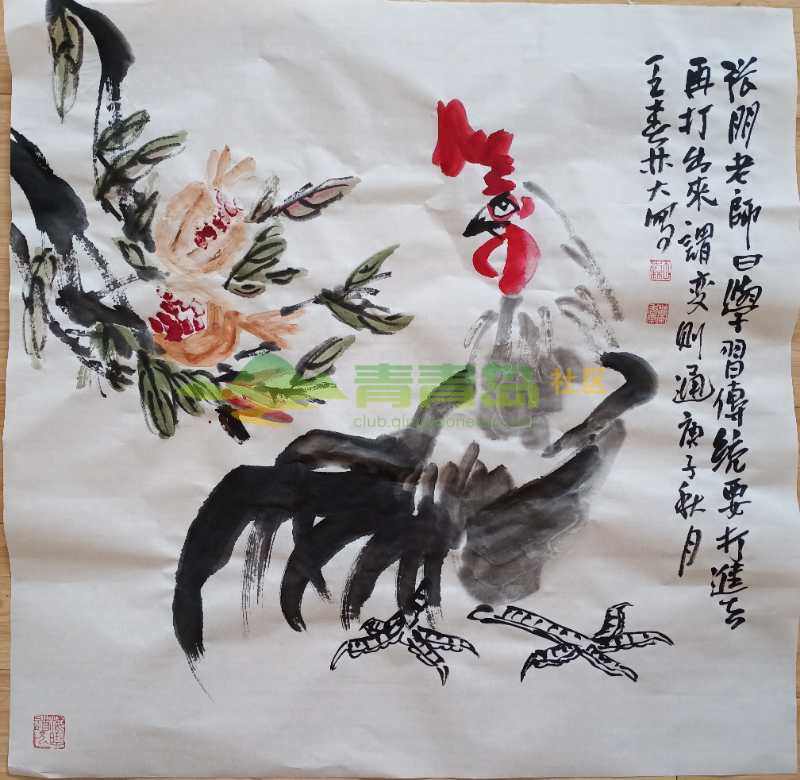 张朋老師曰學習傳統要打進去
再打出來謂变则通庚子秋月
王春林大写
青青岛社区